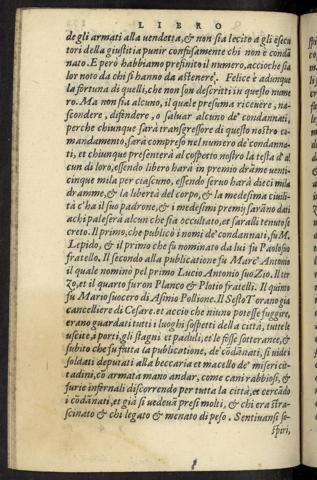 LIBRO
de gli armati alla uendetta, & non sia lecito a gli esecu
tori della giustitia punir confusamente chi non è condā
nato. E però habbiamo prefinito il numero, accioche sia
lor noto da chi si hanno da astenere. Felice è adunque
la fortuna di quelli, che non son descritti in questo nume
ro. Ma non sia alcuno, il quale presuma riceuere, na-
scondere, difendere, o saluar alcuno de' condannati,
perche chiunque sarà transgressore di questo nostro co-
mandamento, sarà compreso nel numero de' condenna-
ti, et chiunque presenterà al cospetto nostro la testa d'al
cun di loro, essendo libero harà in premio drāme uenti-
cinque mila per ciascuno, essendo seruo harà dieci mila
dramme, & la libertà del corpo, & la medesima ciuili-
tà c'ha il suo padrone, & i medesimi premij sarāno dati
a chi paleserà alcun che sia occultato, et saralli tenuto se
creto. Il primo, che publicò i nomi de' condannati, fu M.
Lepido, & il primo che fu nominato da lui fu Paolo suo
fratello. Il secondo alla publicatione fu Marc' Antonio
il quale nominò pel primo Lucio Antonio suo Zio. Il ter
zo, et il quarto furon Planco & Plotio fratelli. Il quinto
fu Mario suocero di Asinio Pollione. Il Sesto Toranio già
cancelliere di Cesare. et accio che niuno potesse fuggire,
erano guardati tutti i luoghi sospetti della città, tutte le
uscite, i porti, gli stagni et paduli, et le fosse sotterranee, &
subito che fu fatta la publicatione, de' cōdānati, si uidei
soldati deputati alla beccaria et macello de' miseri cit-
tadini, cō armata mano andar, come cani rabbiosi, &
furie infernali discorrendo per tutta la città, et cercādo
i cōdānati, et già si uedeuā presi molti, & chi era stra-
scinato & chi legato & menato di peso. Sentiuansi so-
spiri,